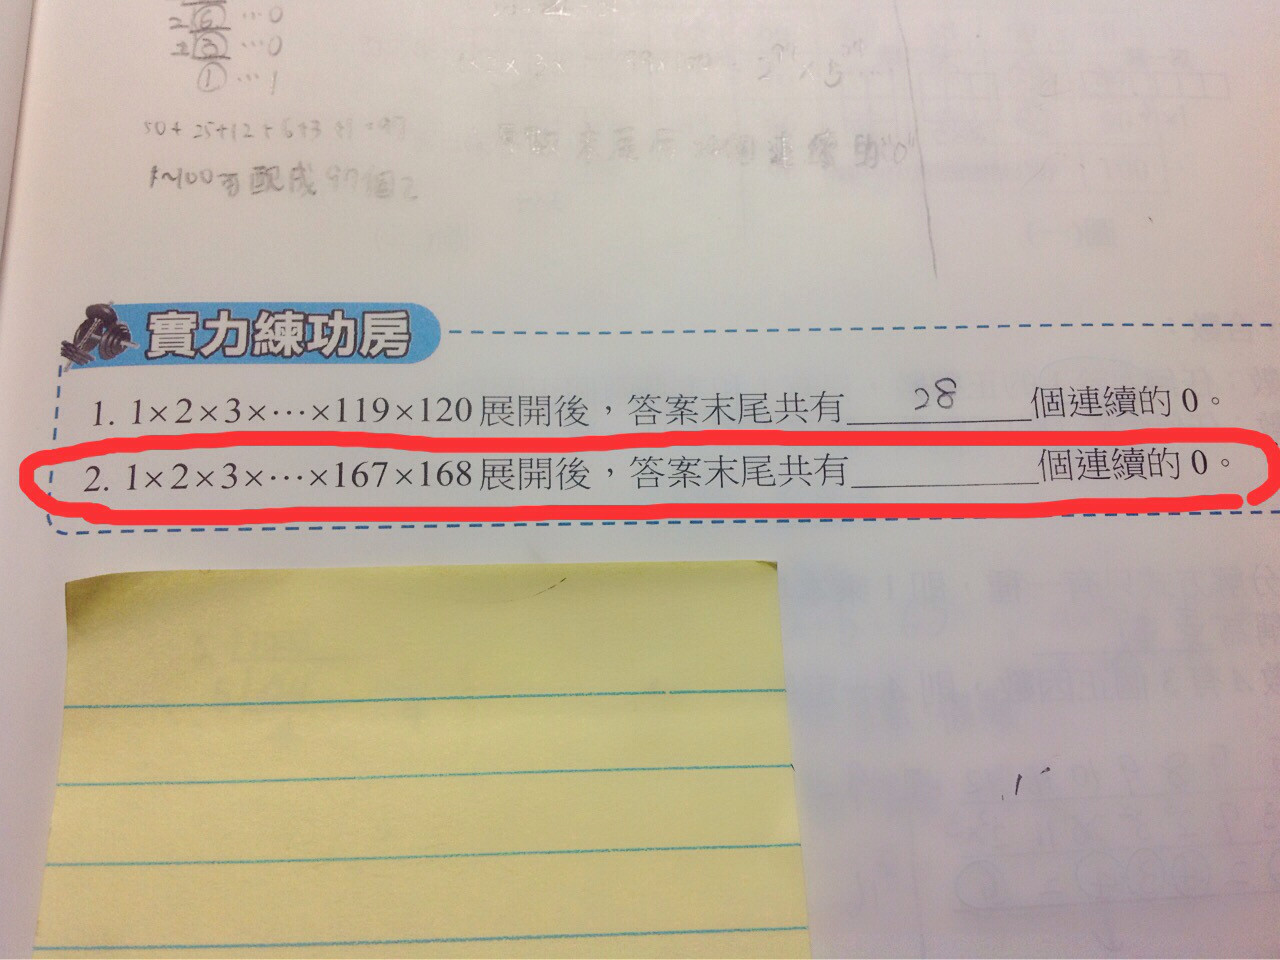 2 6 …0
2 3 …0
1 …1
50+25+12+6+3+1=97
1~100可配成97個2
實力練功房
1. 1×2×3×⋯×119×120展開後，答案末尾共有 28 個連續的 0。
2. 1×2×3×⋯×167×168展開後，答案末尾共有________個連續的 0。